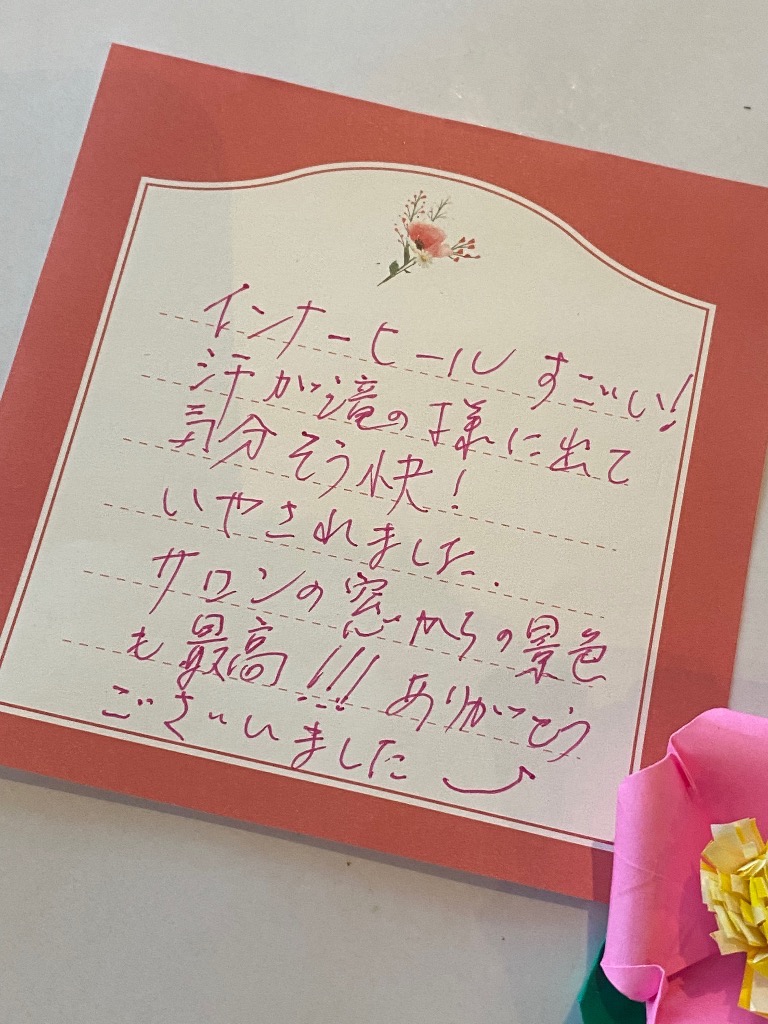 インナーヒール すごい!
汗が滝の様に出て
気分そう快!
いやされました.
サロンの窓からの景色
も最高!!! ありがとう
ございました